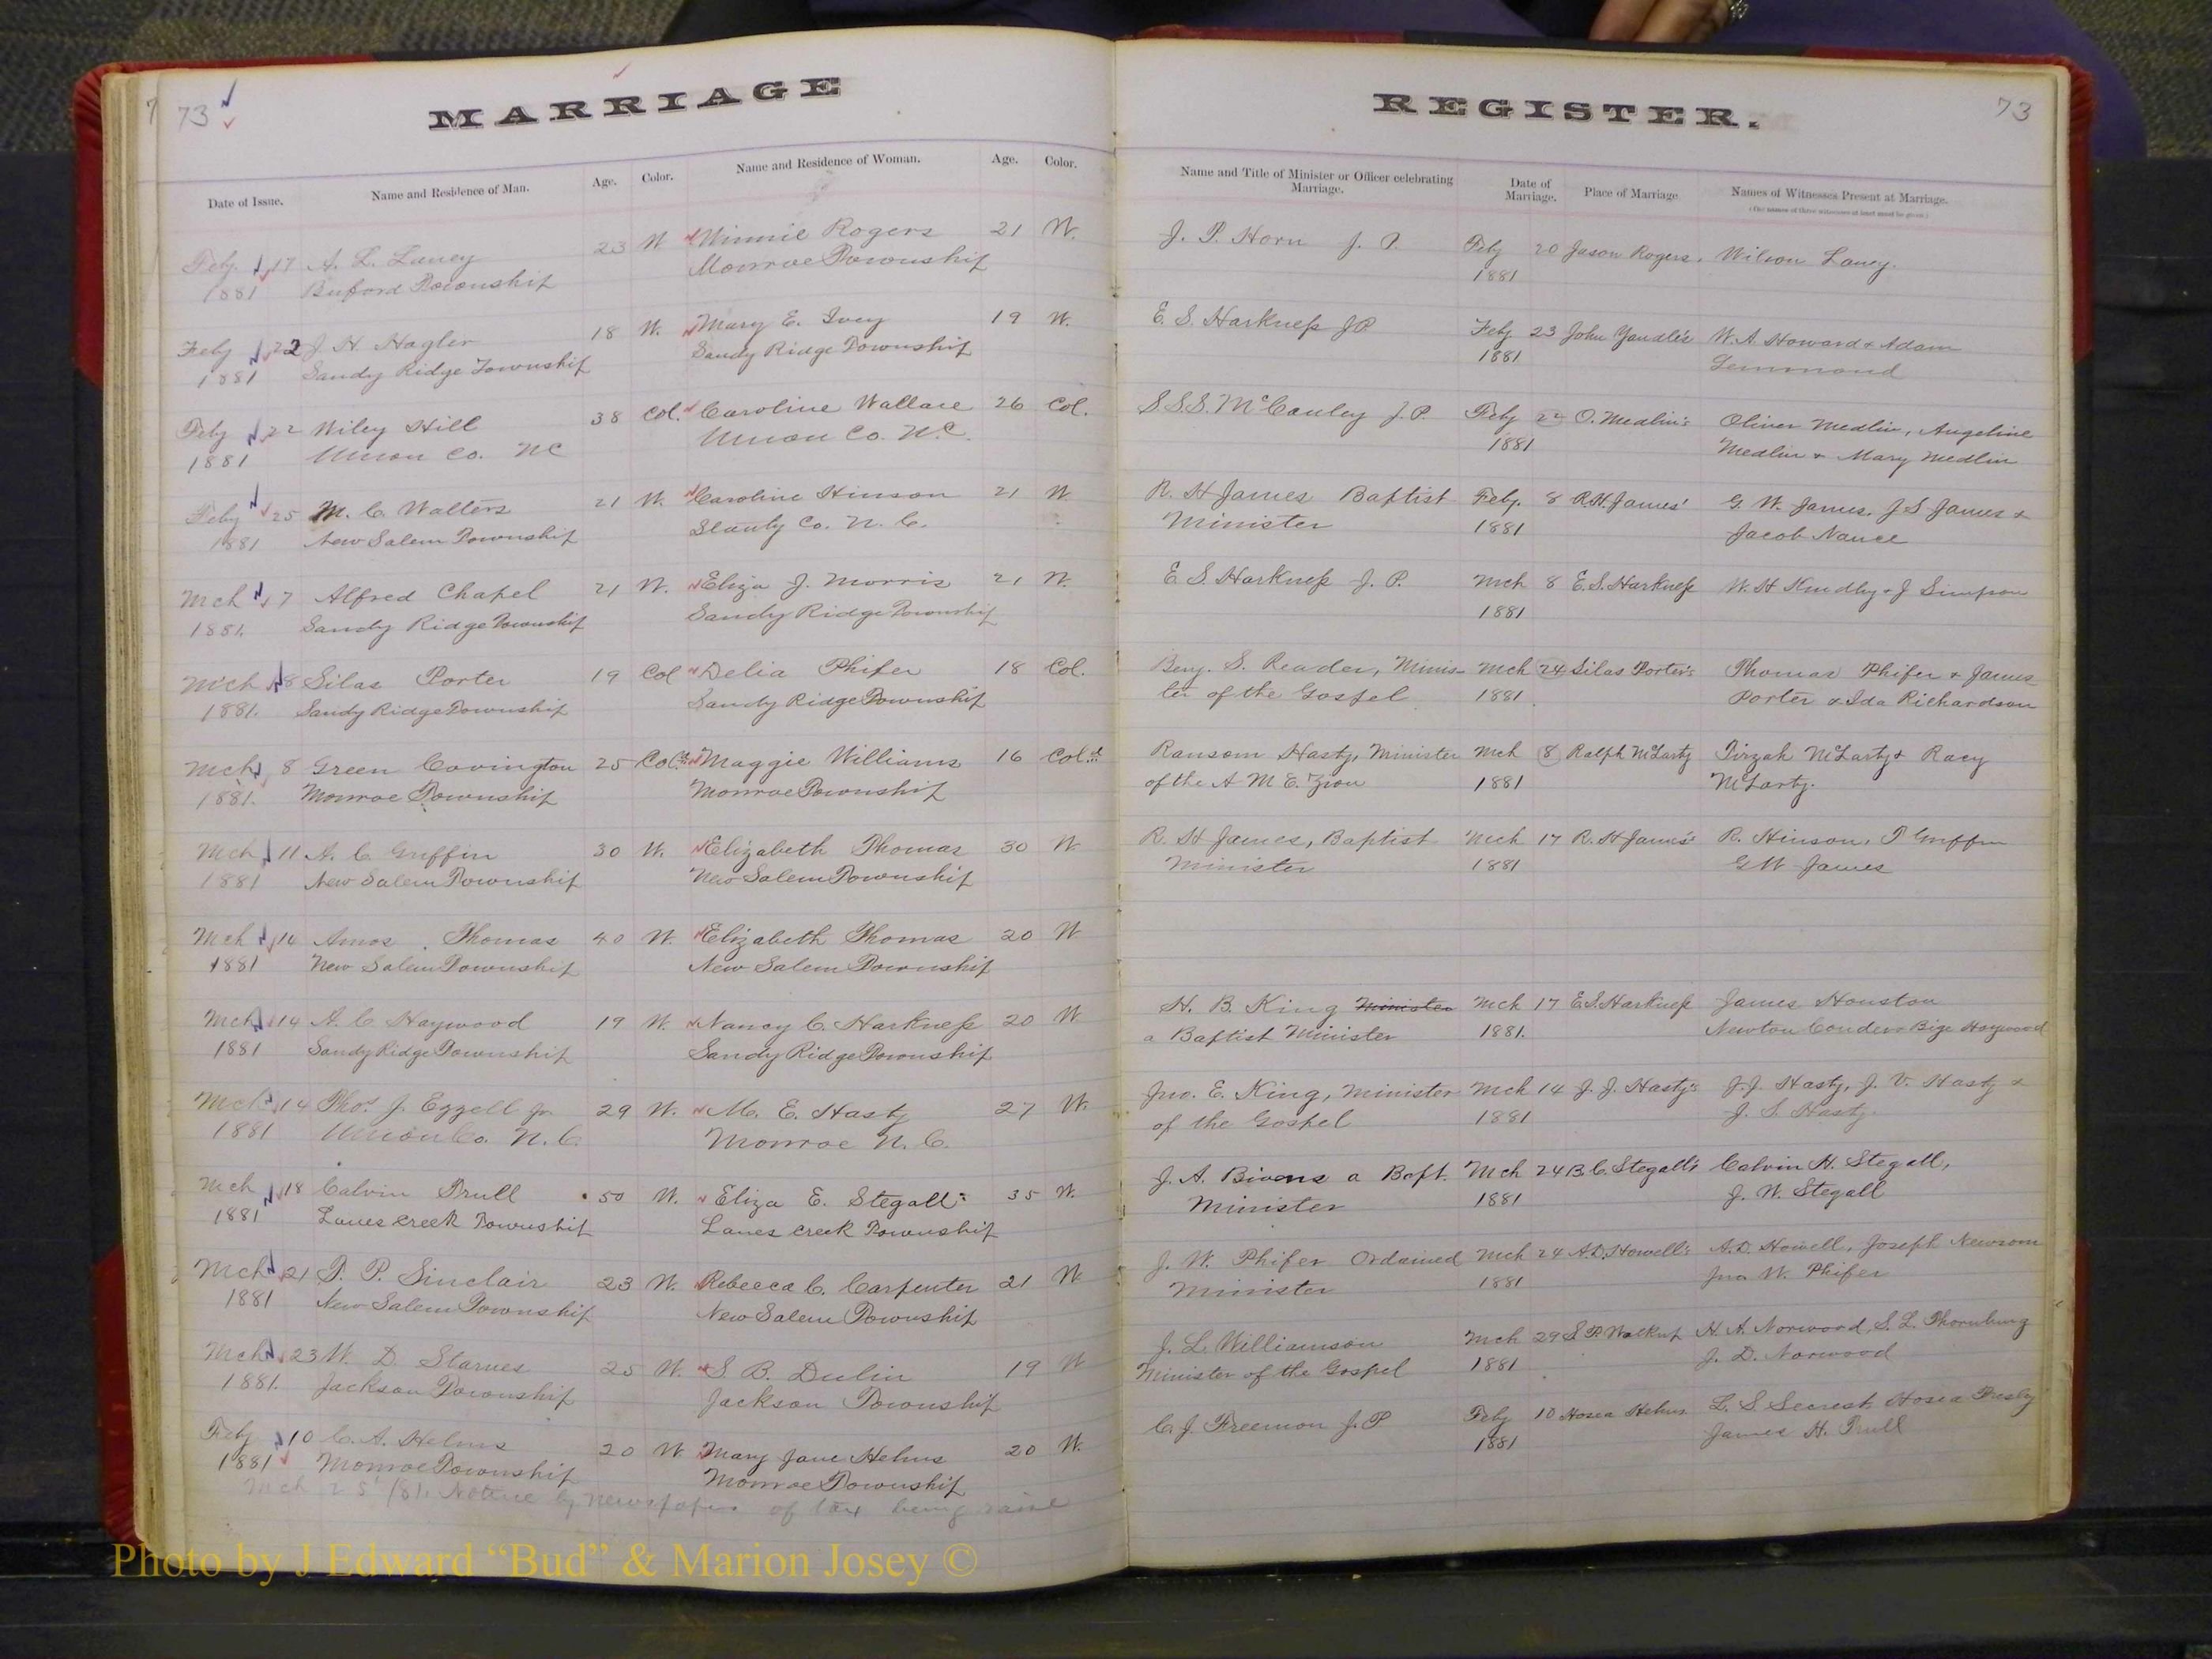 73
MARRIAGE
Date of Issue. Name and Residence of Man. Age. Color. Name and Residence of Woman. Age. Color.
Feby 17 A. L. Laney 23 W Winnie Rogers 21 W.
1881 Buford Township Monroe Township
Feby 22 J. H. Hagler 18 W. Mary E. Ivey 19 W.
1881 Sandy Ridge Township Sandy Ridge Township
Feby 22 Wiley Hill 38 Col. Caroline Wallace 26 Col.
1881 Union Co. NC Union Co. N.C.
Feby 25 M. C. Walters 21 W. Caroline Hinson 21 W
1881 New Salem Township Stanly Co. N. C.
Mch 7 Alfred Chapel 21 W. Eliza J. Morris 21 W.
1881. Sandy Ridge Township Sandy Ridge Township
Mch 8 Silas Porter 19 Col Delia Phifer 18 Col.
1881. Sandy Ridge Township Sandy Ridge Township
Mch 8 Green Covington 25 Col'd Maggie Williams 16 Col'd
1881. Monroe Township Monroe Township
Mch 11 A. C. Griffin 30 W. Elizabeth Thomas 30 W
1881 New Salem Township New Salem Township
Mch 14 Amos Thomas 40 W. Elizabeth Thomas 20 W
1881 New Salem Township New Salem Township
Mch 14 A. C. Haywood 19 W. Nancy C. Harkness 20 W
1881 Sandy Ridge Township Sandy Ridge Township
Mch 14 Thos. J. Ezzell Jr. 29 W. M. E. Hasty 27 W.
1881 Union Co. N. C. Monroe N. C.
Mch 18 Calvin Trull 50 W. Eliza E. Stegall 35 W.
1881 Lanes Creek Township Lanes Creek Township
Mch 21 T. P. Sinclair 23 W. Rebecca C. Carpenter 21 W
1881 New Salem Township New Salem Township
Mch 23 W. D. Starnes 25 W. S. B. Dulin 19 W
1881. Jackson Township Jackson Township
Feby 10 C. A. Helms 20 W Mary Jane Helms 20 W.
1881 Monroe Township Monroe Township
Mch 25 /81. Notice by newspaper of tax being raise
REGISTER.
73
Name and Title of Minister or Officer celebrating Marriage. Date of Marriage. Place of Marriage Names of Witnesses Present at Marriage.
(The names of three witnesses at least must be given.)
J. P. Horn J. P. Feby 20 Jason Rogers. Wilson Laney.
1881
E. S. Harkness JP Feby 23 John Yandle's W. A. Howard & Adam
1881 Lemmond
S.S.S. McCauley J. P. Feby 22 O. Medlin's Oliver Medlin, Angeline
1881 Medlin & Mary Medlin
R. H James Baptist Feby. 8 R.H. James' G. W. James, J S James &
Minister 1881 Jacob Nance
E S Harkness J. P. Mch 8 E. S. Harkness W. H & J Simpson
1881
Benj. S. Reader, Minis- Mch 24 Silas Porter's Thomas Phifer & James
ter of the Gospel 1881 Porter & Ida Richardson
Ransom Hasty, Minister Mch 8 Ralph McLarty Tirzah McLarty & Racy
of the A M E. Zion 1881 McLarty.
R. H James, Baptist Mch 17 R. H James' R. Hinson, T Griffin
Minister 1881 G W James
H. B. King Minister Mch 17 E.S. Harkness James Houston
a Baptist Minister 1881. Newton Bige Haywood
Jno. E. King, Minister Mch 14 J. J. Hasty's J. J. Hasty, J. V. Hasty &
of the Gospel 1881 J. S. Hasty.
J. A. Bivens a Bapt. Mch 24 B. C. Stegall's Calvin H. Stegall,
Minister 1881 J. W. Stegall
J. W. Phifer Ordained Mch 24 A.D. Howell's A.D. Howell, Joseph Newsom
Minister 1881 Jno W. Phifer
J. L. Williamson Mch 29 S P Walkup H. A. Norwood, S. L. Thornburg
Minister of the Gospel 1881 J. D. Norwood
C. J. Freemon J. P Feby 10 Hosea Helms L. S Secrest Hosea Presley
1881 James H. Trull
Photo by J Edward “Bud” & Marion Josey ©